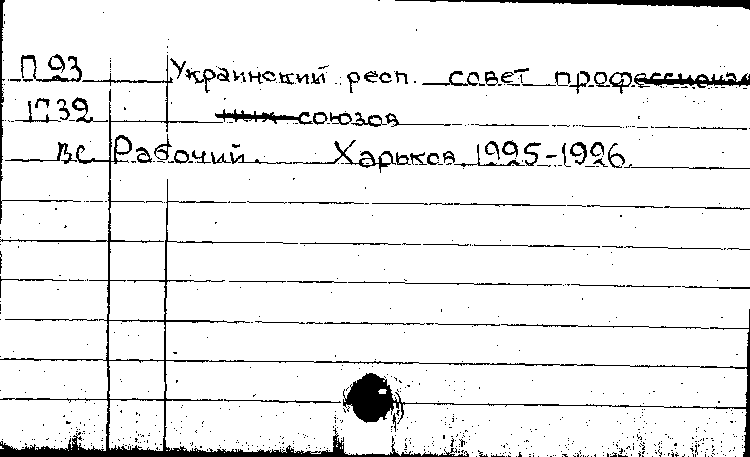 П 93 Украинский респ. совет профессиональ
1732 ных союзов
вс Рабочий. Харьков, 1925-1926.